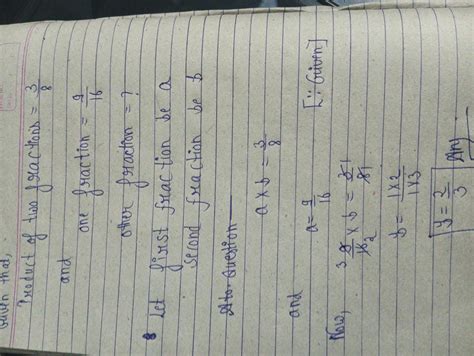 Given that,
Product of two fractions = 3/8
and
one fraction = 9/16
other fraction = ?
Let first fraction be a
second fraction be b
Ato question
a × b = 3/8
and
a = 9/16 [∵ Given]
Now,
3 9/16 2 × b = 3 1/8 1
b = 1×2/1×3
y = 2/3 Ans